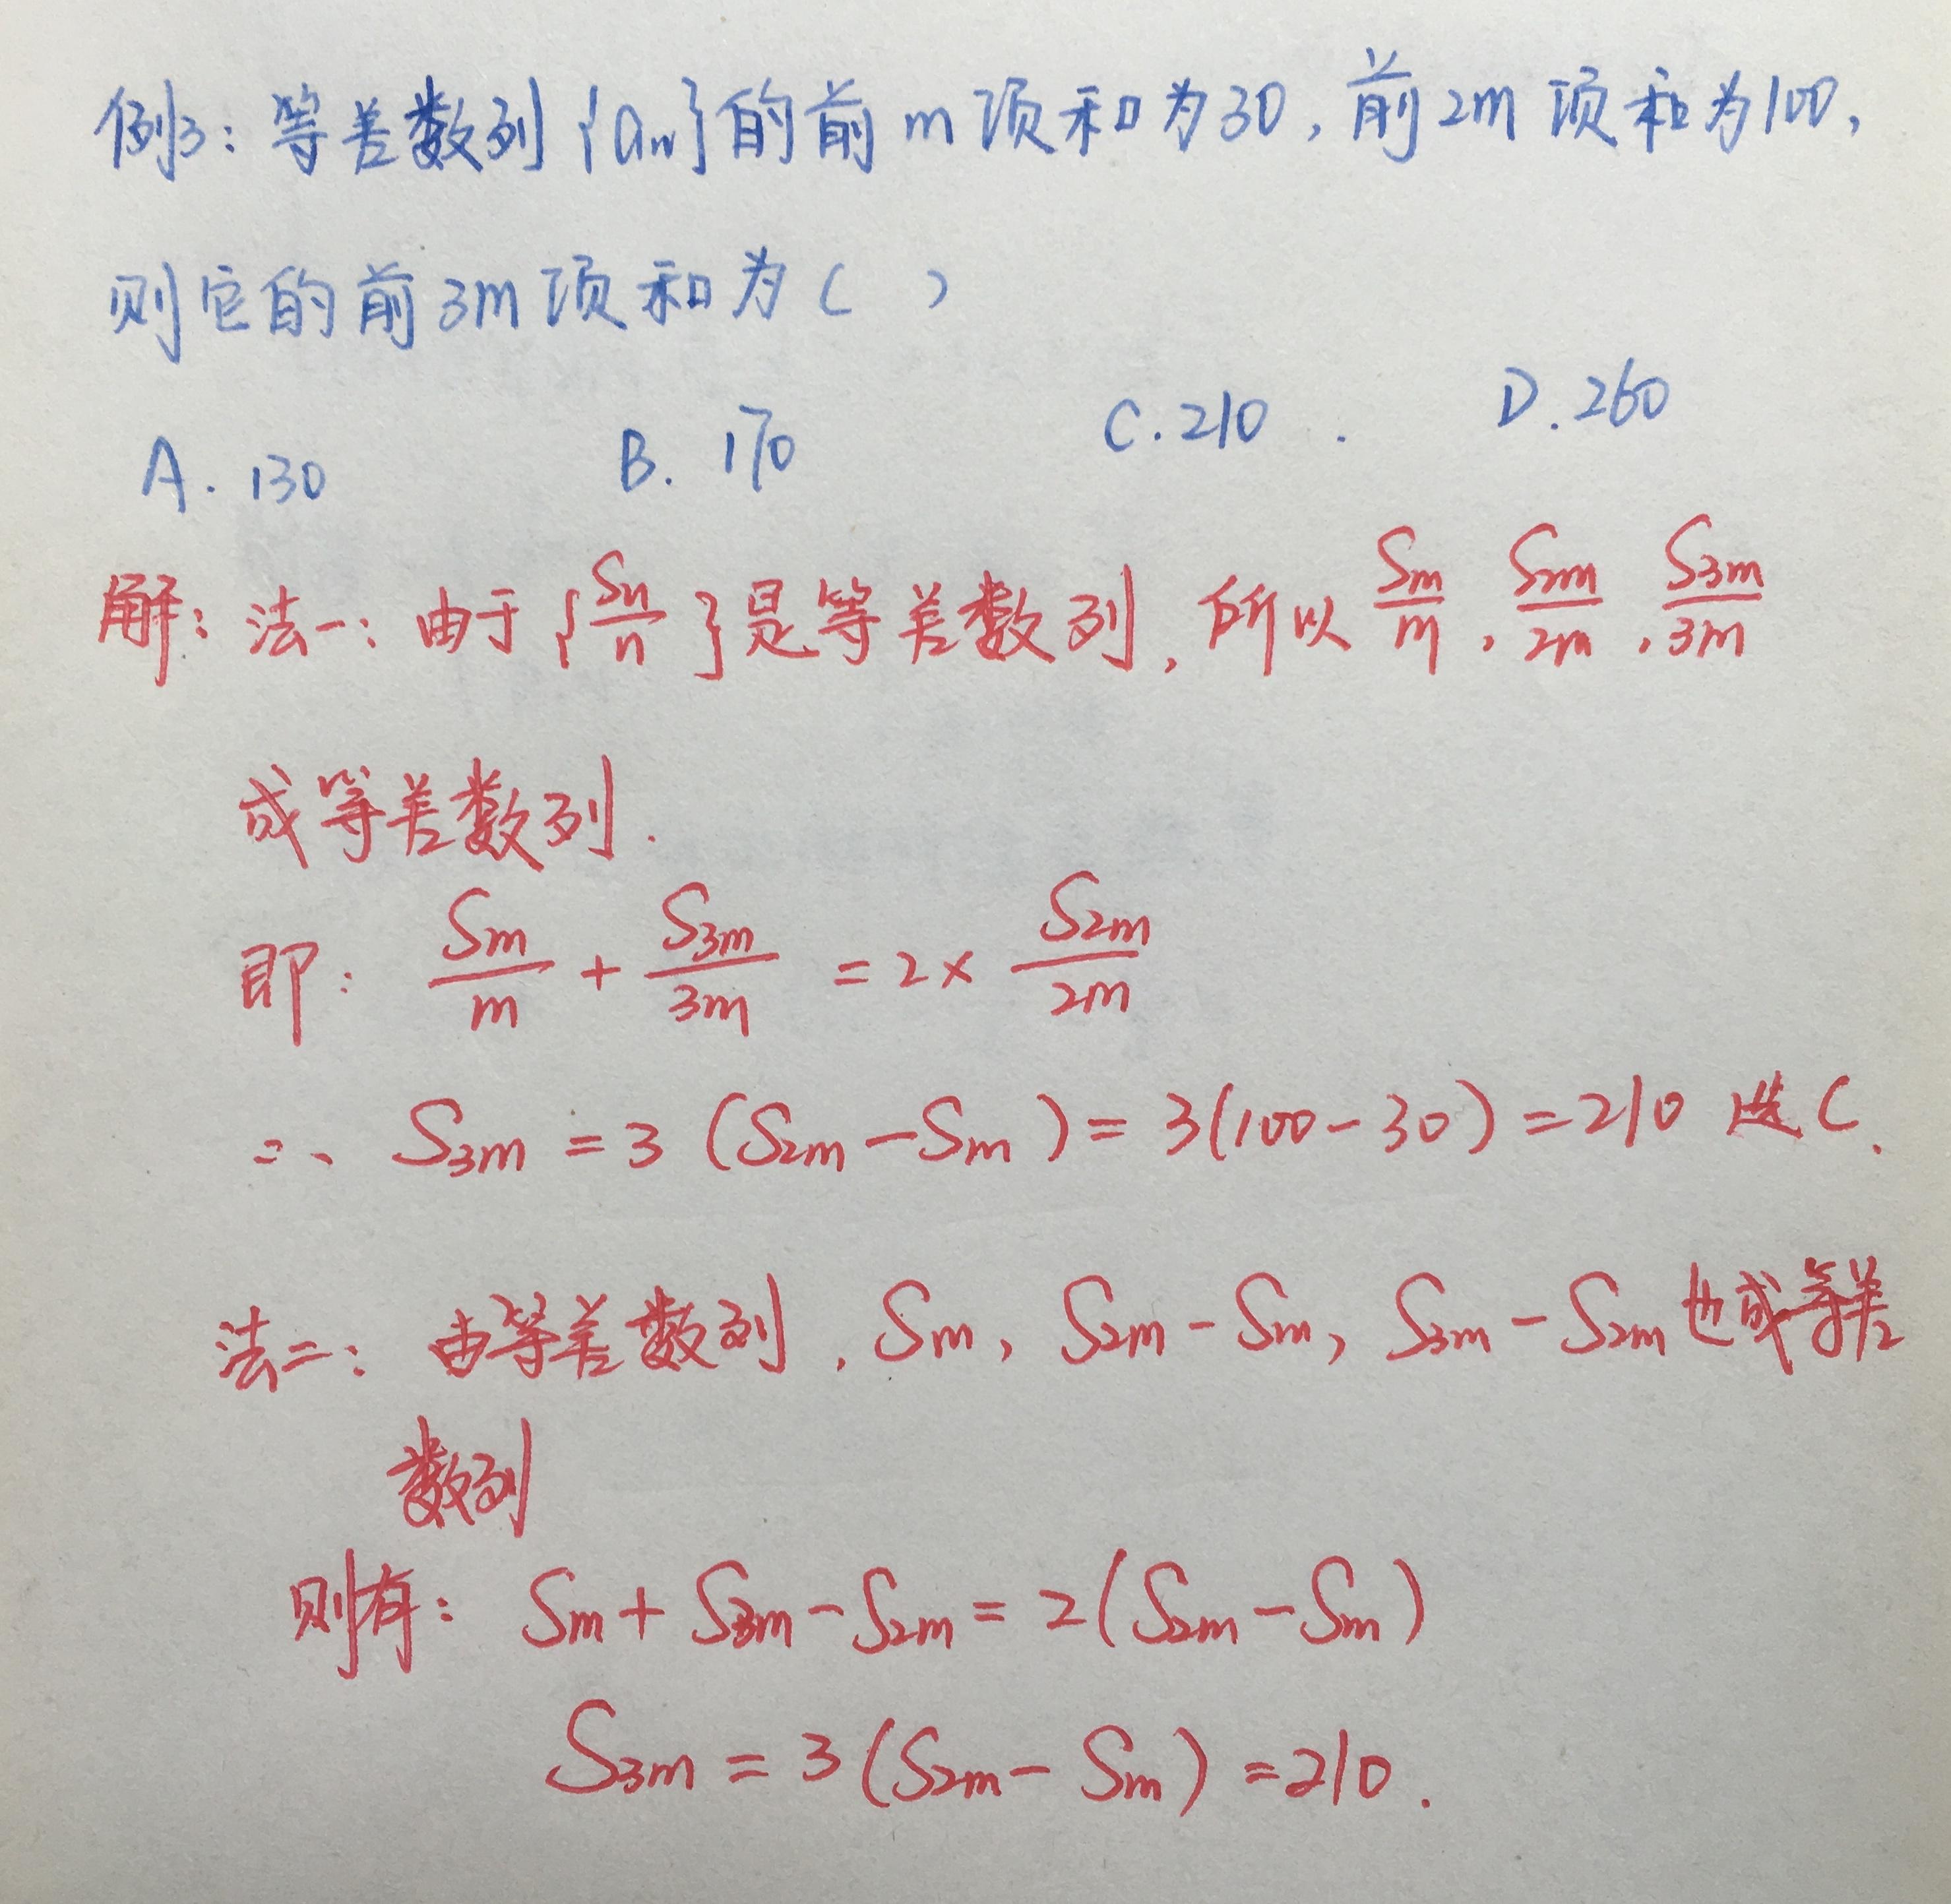 例3：等差数列{an}的前m项和为30，前2m项和为100，
则它的前3m项和为（  ）
A. 130  B. 170  C. 210.  D. 260
解：法一：由于{Sn/n}是等差数列，所以 Sm/m，S2m/2m，S3m/3m
成等差数列.
即：Sm/m + S3m/3m = 2 × S2m/2m
∴ S3m = 3 (S2m - Sm) = 3(100-30) = 210 选C.
法二：由等差数列，Sm, S2m-Sm, S3m-S2m也成等差
数列
则有：Sm + S3m - S2m = 2(S2m - Sm)
S3m = 3(S2m - Sm) = 210.